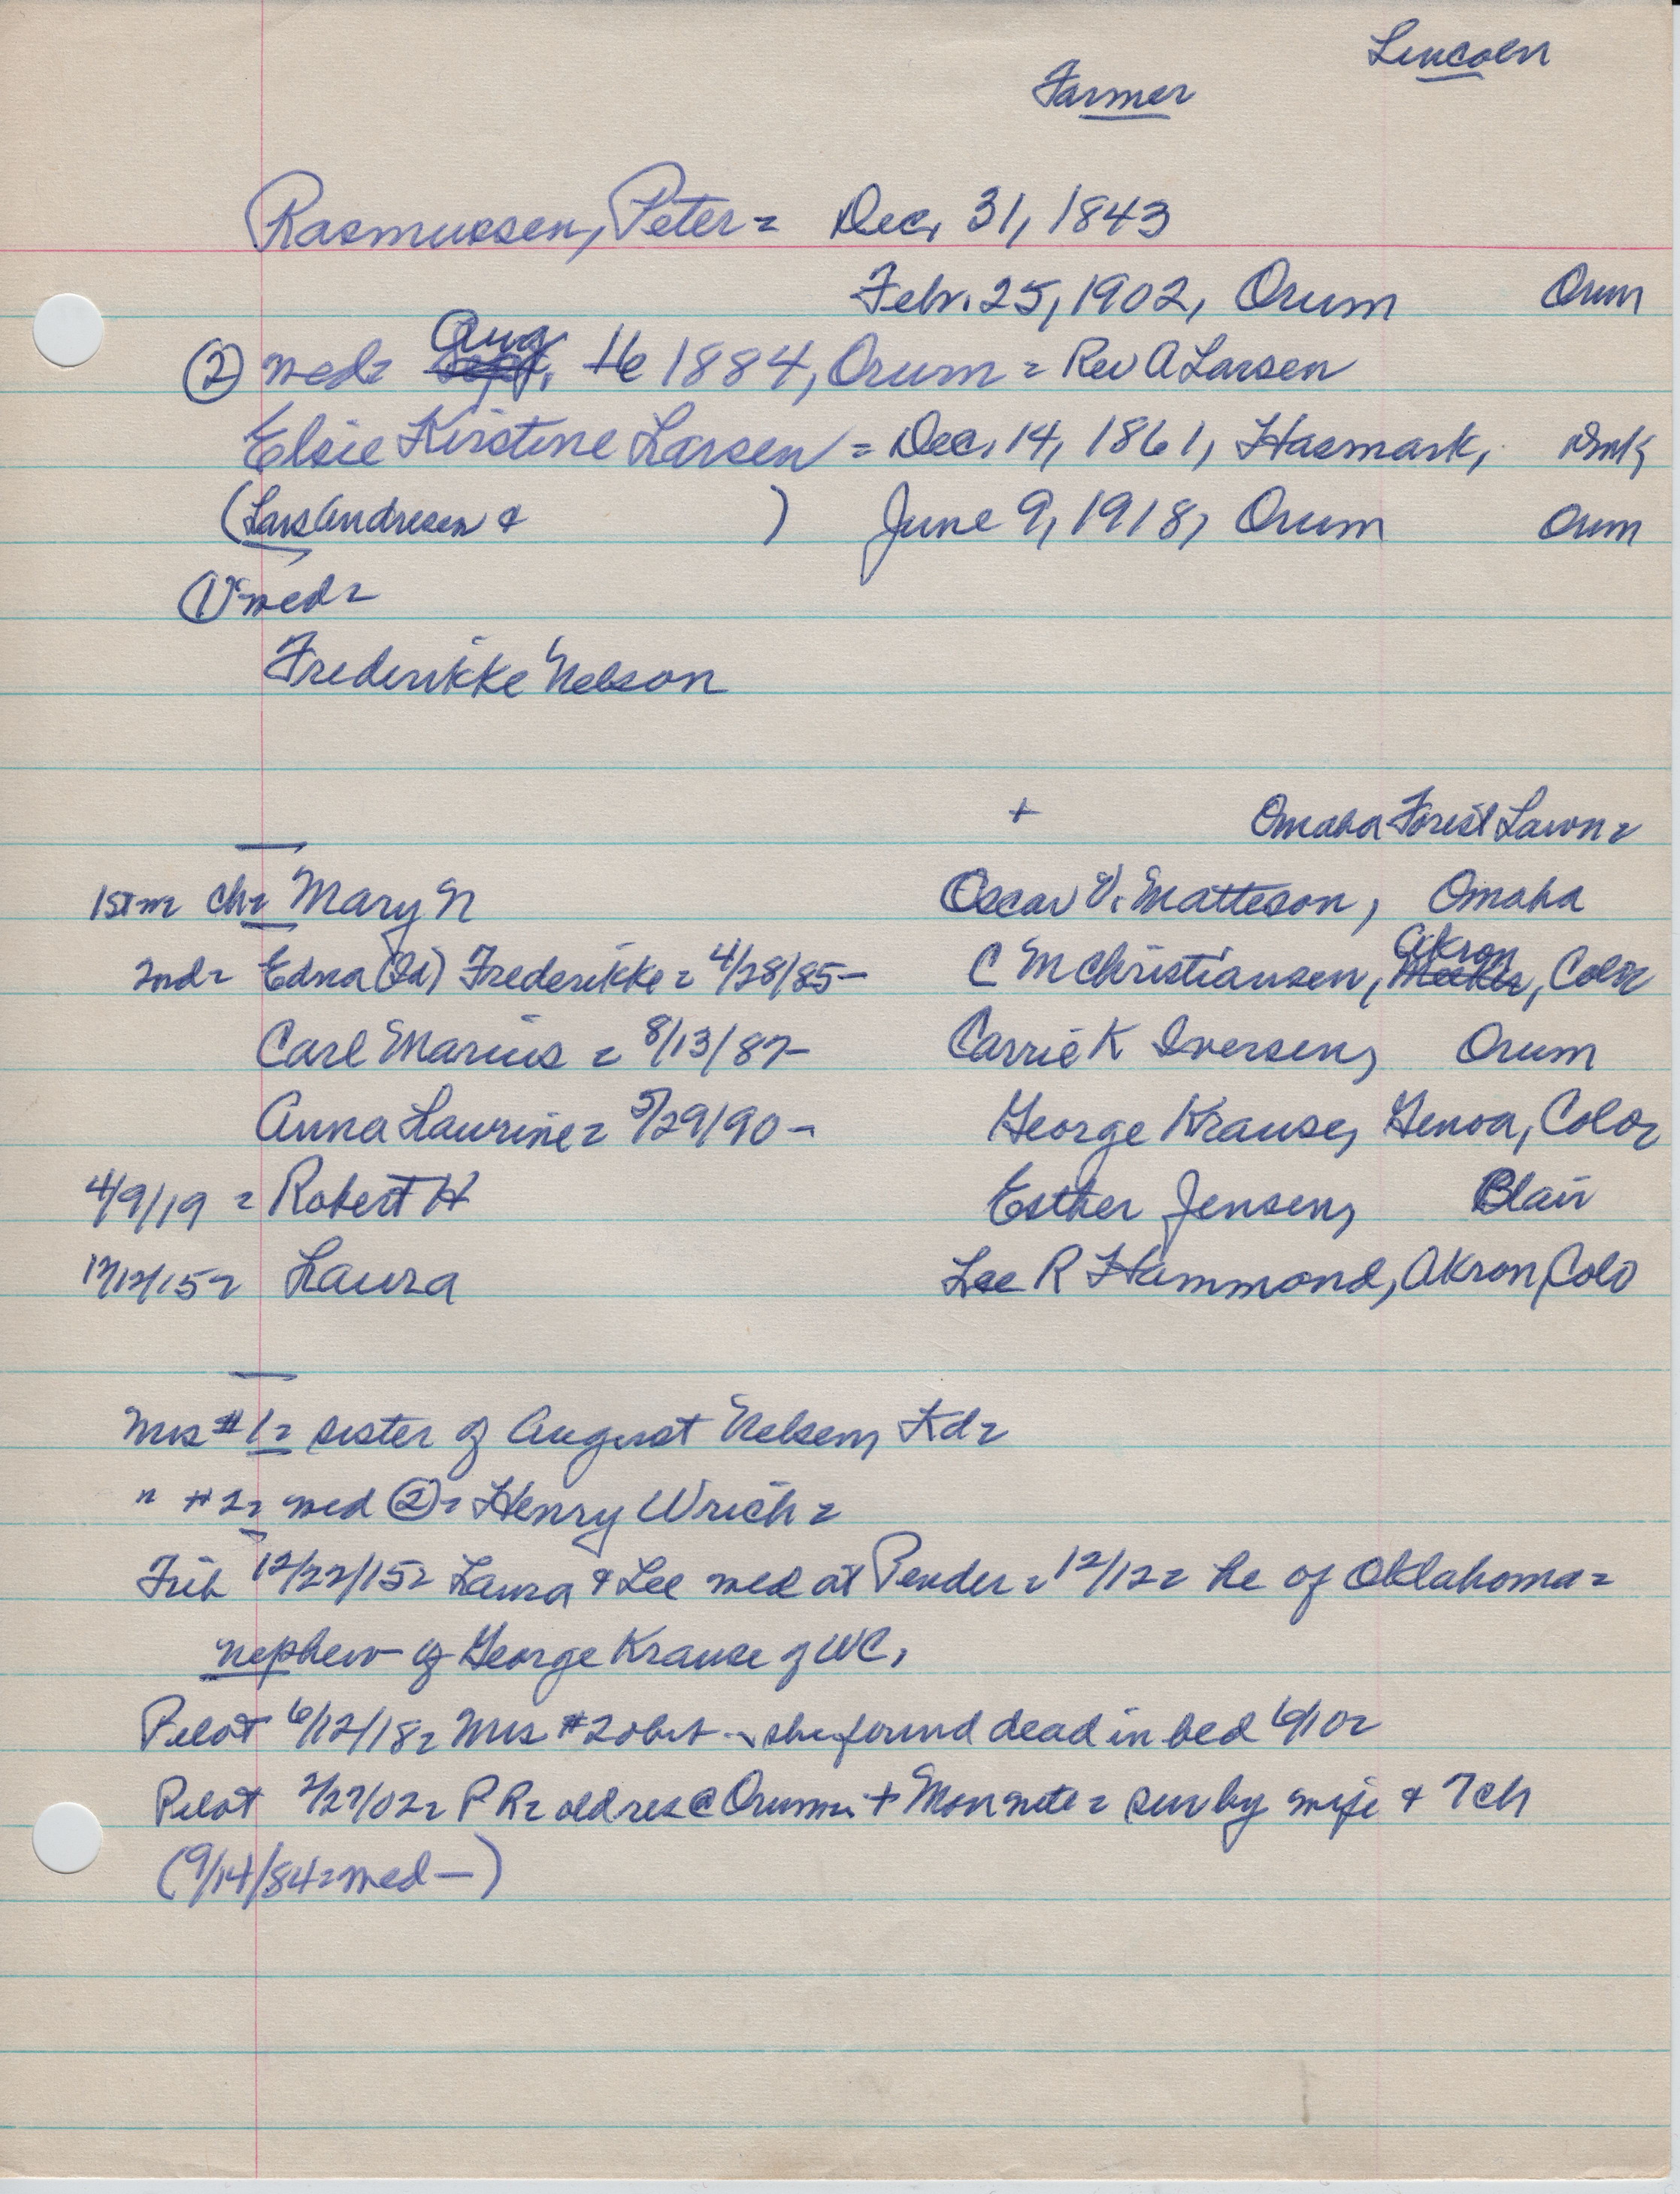 Lincoln
Farmer
Rasmussen, Peter = Dec. 31, 1843
Febr. 25, 1902, Orum Orum
② med= Aug 16 1884, Orum = Rev A Larsen
Elsie Kirstine Larsen = Dec. 14, 1861, Hasmark, Dmk
(Lars Andresen & ) June 9, 1918, Orum Orum
① med=
Frederikke Nelson
+ Omaha Forest Lawn =
1st m ch= Mary N Oscar V. Matteson, Omaha
2nd= Edna (Ed) Frederikke = 4/28/85— C M Christiansen, Akron, Colo=
Carl Marius = 8/13/87— Carrie K Iversen, Orum
Anna Laurine= 5/29/90— George Krause, Genoa, Colo=
4/9/19 = Robert H Esther Jensen, Blair
12/12/15= Laura Lee R Hammond, Akron, Colo
Mrs #1= sister of August Nelsen, Kd=
" #2= med ②= Henry Wrich=
Trib 12/22/15= Laura & Lee med at Pender = 12/12= he of Oklahoma=
nephew of George Krause of WC,
Pilot 6/12/18= Mrs #2 obit — she found dead in bed 6/10=
Pilot 2/27/02= P R= old res @ Orum= + Mon nite= sur by wife & 7 ch
(9/14/84=med—)